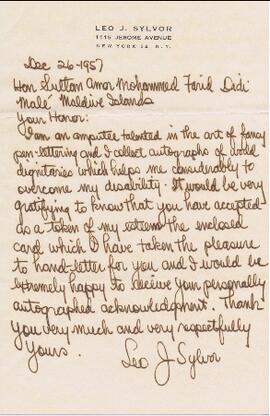 LEO J. SYLVOR
1115 JEROME AVENUE
NEW YORK 52, N.Y.
Dec 26-1957
Hon Sultan Amor Mohammed Farid Didi
Malé Maldive Islands
Your Honor:
I am an amputee talented in the art of fancy
pen-lettering and I collect autographs of world
dignitaries which helps me considerably to
overcome my disability. It would be very
gratifying to know that you have accepted
as a token of my esteem the enclosed
card which I have taken the pleasure
to hand-letter for you and I would be
extremely happy to receive your personally
autographed acknowledgment. Thank
you very much and very respectfully
Yours.
Leo J Sylvor